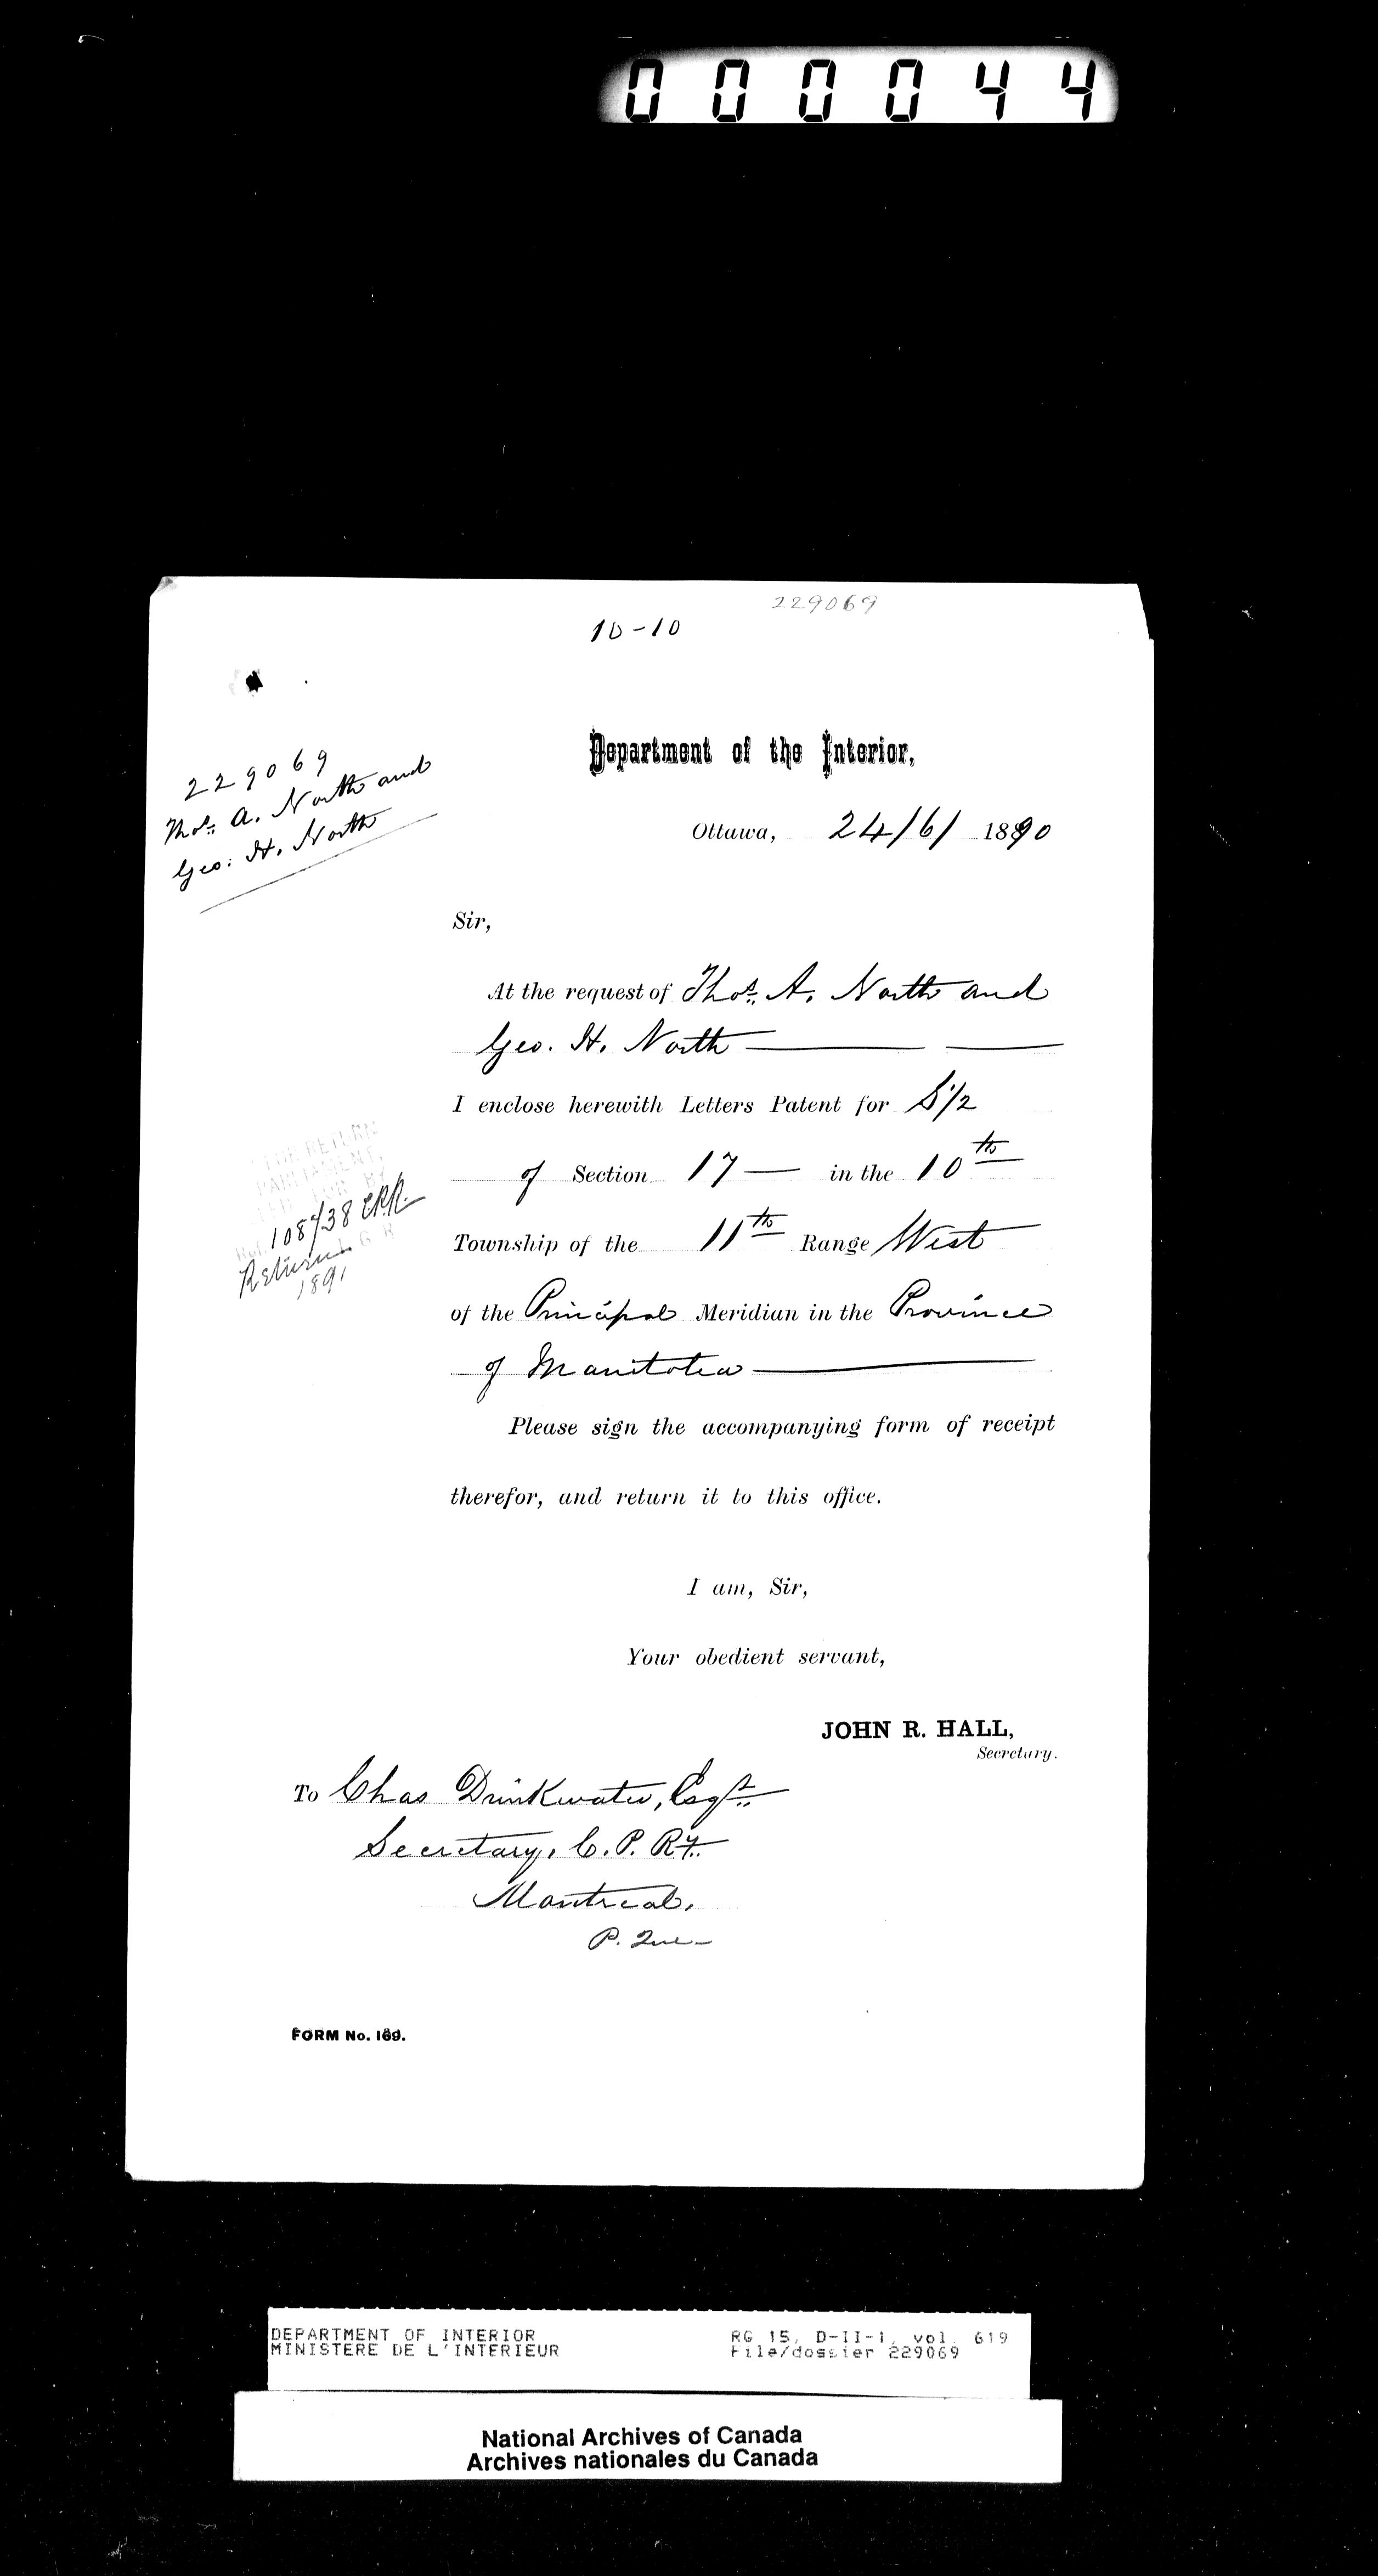 000044
229069
10-10
Department of the Interior,
229069
Thos. A. North and
Geo: H. North
Ottawa, 24/6/ 1890
Sir,
At the request of Thos. A. North and
Geo. H. North
I enclose herewith Letters Patent for S½
of Section 17 — in the 10th
Township of the 11th Range West
of the Principal Meridian in the Province
of Manitoba
FOR RETURN
PARLIAMENT,
FOR BY
108738 CPR
Return
1891
Please sign the accompanying form of receipt
therefor, and return it to this office.
I am, Sir,
Your obedient servant,
JOHN R. HALL,
Secretary.
To Chas Drinkwater, Esqr.
Secretary, C. P. Ry.
Montreal.
P. Que—
FORM No. 169.
DEPARTMENT OF INTERIOR RG 15, D-II-1, vol. 619
MINISTERE DE L'INTERIEUR File/dossier 229069
National Archives of Canada
Archives nationales du Canada